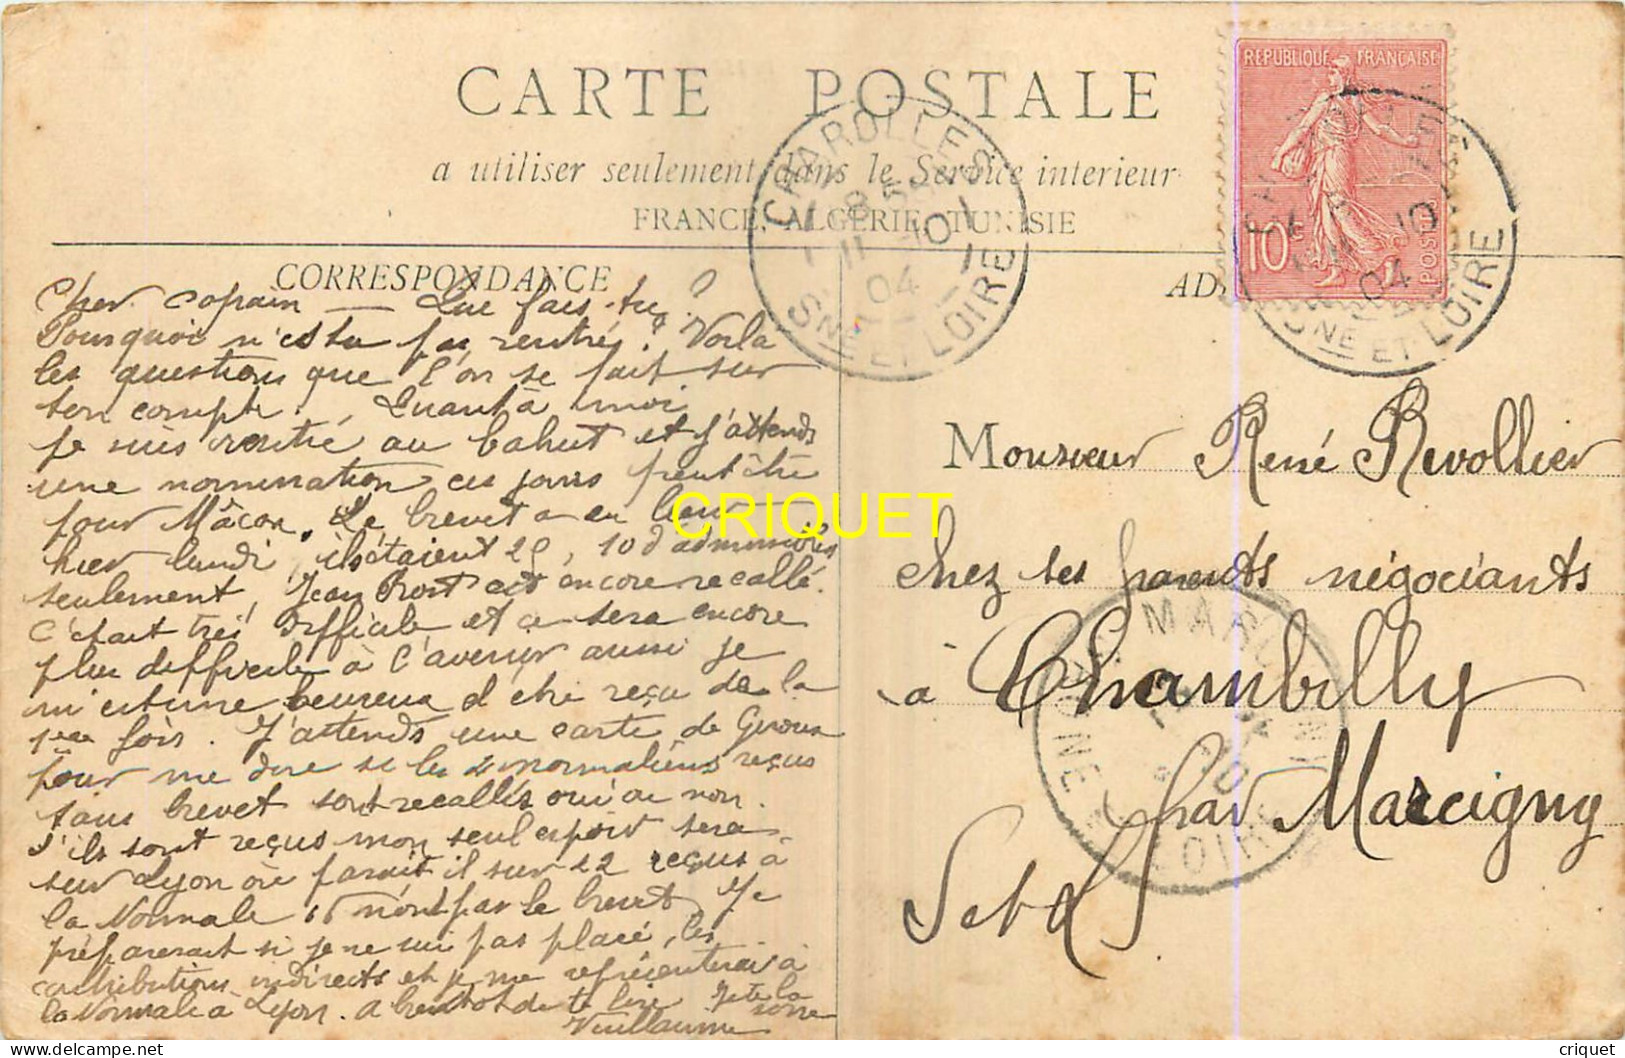 CARTE POSTALE
a utiliser seulement dans le Service interieur
FRANCE, ALGERIE, TUNISIE
REPUBLIQUE FRANÇAISE
10c
POSTES
CHAROLLES
8 55
11 10
04
SNE ET LOIRE
11 10
04
ET LOIRE
CORRESPONDANCE
Cher copain — Que fais-tu?
Pourquoi n'es tu pas rentré? Voilà
les questions que l'on se fait sur
ton compte. Quant à moi
je suis rentré au bahut et j'attends
une nomination ces jours peut être
pour Mâcon. Le brevet a eu lieu
hier lundi, ils étaient 25, 10 d'admissibles
seulement, Jean Prost est encore recallé.
C'était très difficile et ce sera encore
plus difficile à l'avenir aussi je
m'estime heureux d'être reçu de la
1ère fois. J'attends une carte de
pour me dire si les 2 normaliens reçus
sans brevet sont recallés oui ou non.
S'ils sont reçus mon seul espoir sera
sur Lyon où parait il sur 22 reçus à
la Normale 16 n'ont pas le brevet. Je
préparerai si je ne suis pas placé, les
contributions indirects et je me représenterai à
la Normale à Lyon. A bientôt de te lire Je te la
serre
Vuillaume
Monsieur René Revollier
chez ses parents négociants
à Chambilly
par Marcigny
S et L
MARCIGNY
LOIRE
CRIQUET
criquet
www.delcampe.net